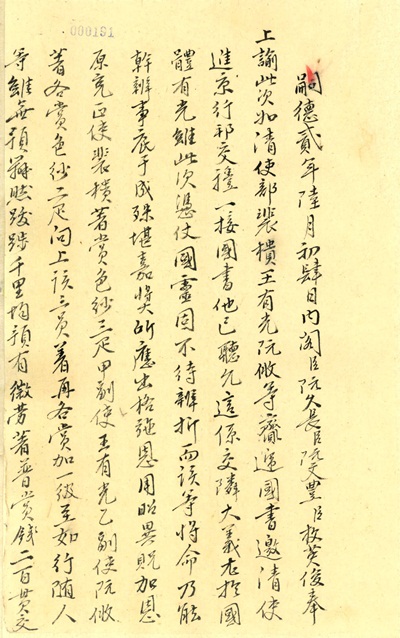 000191
嗣德貳年陸月初肆日内閣臣阮久長臣阮文豐臣枚英俊奉
上諭此次如清使部裴樻王有光阮做等齎遞國書邀清使
進京行邦交禮一接國書他已聽允這係交隣大義尤於國
體有光雖此次憑仗國靈固不待辨折而該等將命乃能
幹辦事底于成殊堪嘉奬所應出格強恩用昭異貺加恩
原充正使裴樻著賞色紗三疋甲副使王有光乙副使阮做
著各賞色紗二疋向上該三員著再各賞加一級至如行随人
等雖無預辭然跋踄千里均預有微勞著普賞錢二百貫交